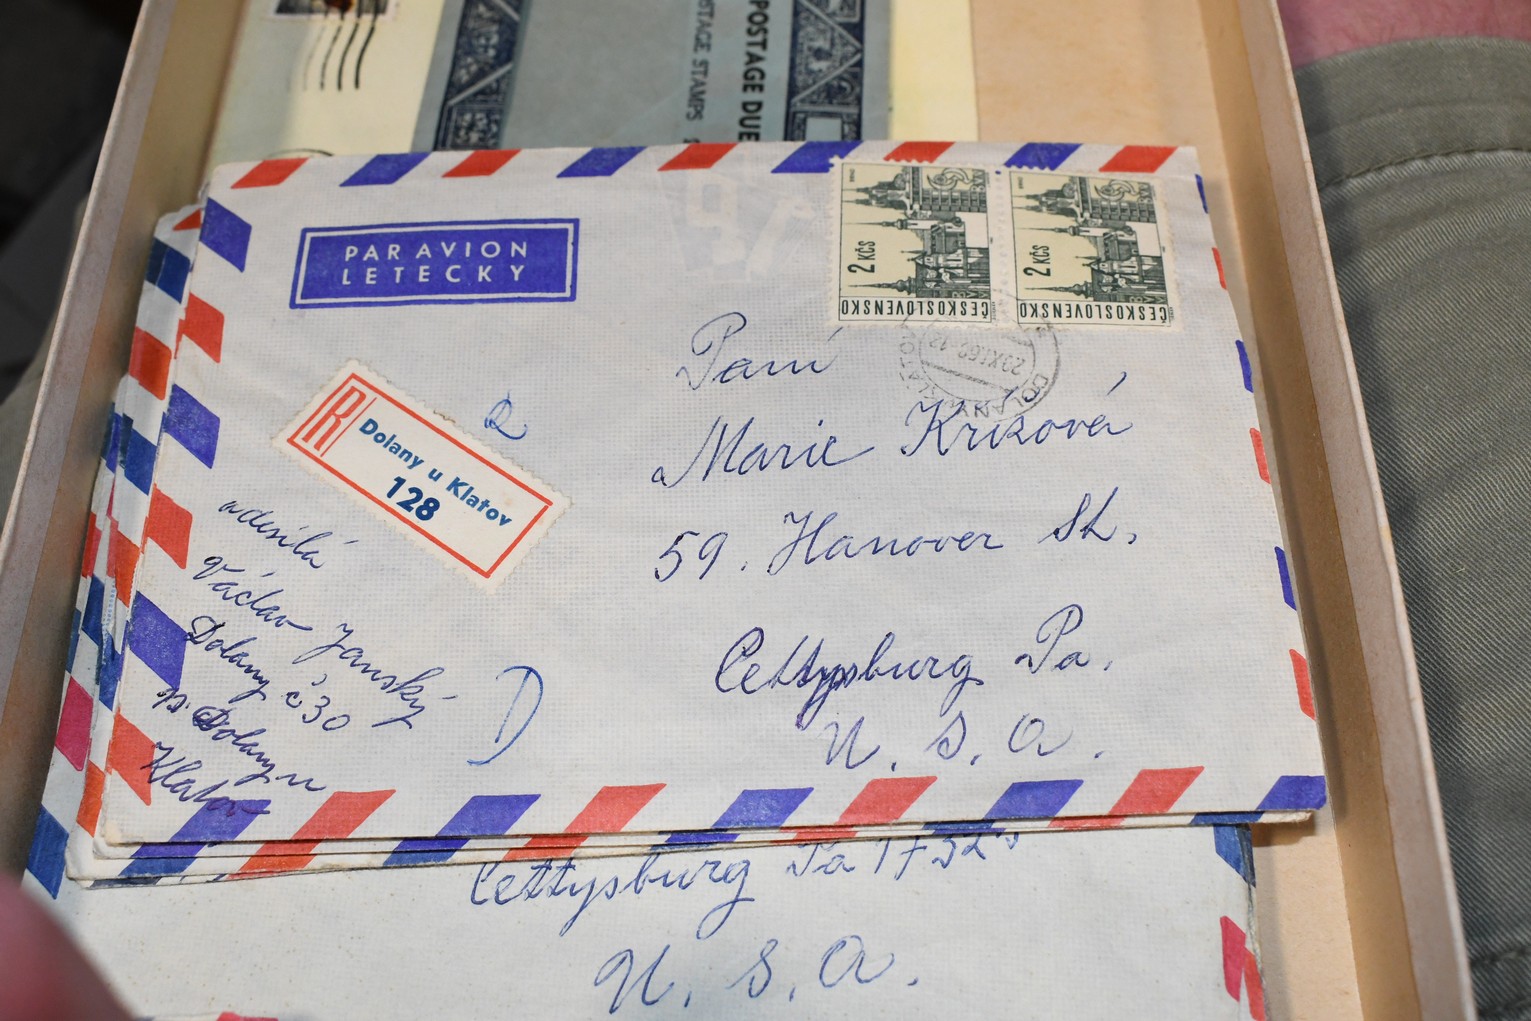 POSTAGE DUE
POSTAGE STAMPS
PAR AVION
LETECKY
2 KČS
ČESKOSLOVENSKO
2 KČS
ČESKOSLOVENSKO
DOLANY
R
Dolany u Klatov
128
Paní
Marie Křížová
59. Hanover St.
Gettysburg Pa.
U. S. A.
odesílá
Václav Janský
Dolany č 30
p. Dolany u
Klatov
D
Gettysburg Pa 17325
U. S. A.